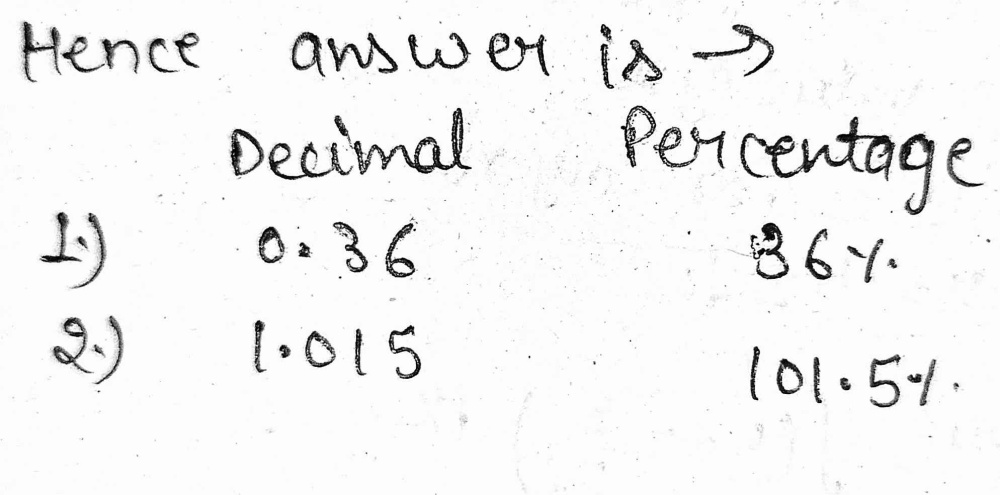 Hence answer is →
Decimal Percentage
1.) 0.36 36%
2.) 1.015 101.5%